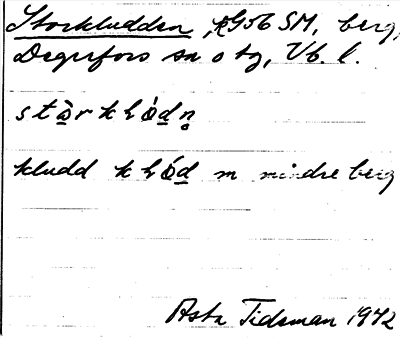 Storkludden, RG56 SM, berg,
Degerfors sn o tg, Vb. l.
stò̱rkló̱dn̥
kludd kló̱d m mindre berg
Asta Tidsman 1972